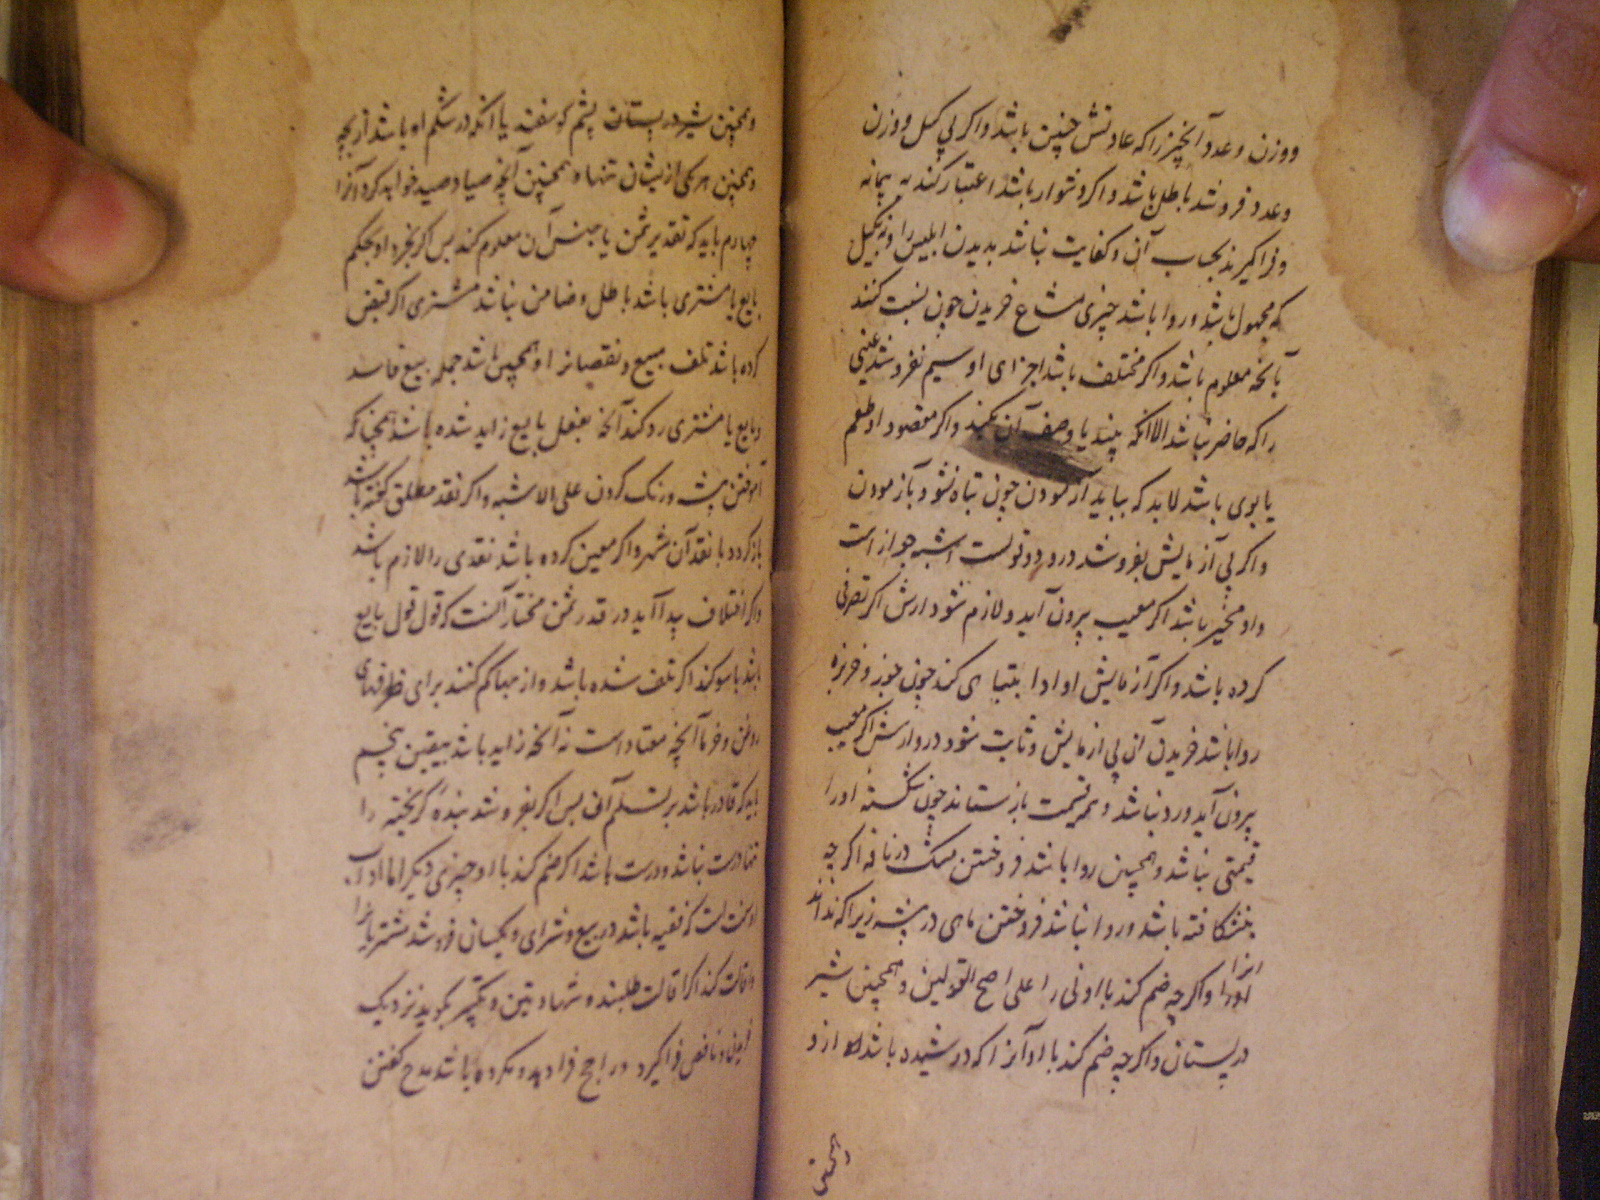 ووزن وعدد آنچیز را که عادتش چنین باشد واکر بی کیل ووزن
وعدد فروشد باطل باشد واکر دشوار باشد اعتبار کند به پیمانه
وفرا کیرند بحساب آن وکفایت نباشد بدیدن
که مجهول باشد وروا باشد چیزی مشاع خریدن چون نسبت کنند
بآنچه معلوم باشد واکر مختلف باشد اجزای او سیم نفروشد عینی
را که حاضر نباشد الا انکه بیند یا وصف آن بکند واکر مقصود او طعم
یا بوی باشد لابد که بباید آزمودن چون تباه نشود بآزمودن
واکر بی آزمایش بفروشد درو دو قولست اشبه جواز است
واو مخیر باشد اکر معیب بیرون آید ولازم شود ارش اکر تصرفی
کرده باشد واکر آزمایش او ادا بتباهی کند چون جوز وخربزه
روا باشد خریدن آن بی ازمایش وثابت شود درو ارش اکر معیب
بیرون آید ورد نباشد وهم قیمت بازستاند چون شکسته اورا
قیمتی نباشد وهمچنین روا باشد فروختن مشک در نافه اکر چه
بنشکافته باشد وروا نباشد فروختن ماهی در بیشه زیرا که نداند
انرا
اورا واکر چه ضم کند با اونی را علی اصح القولین وهمچنین شیر
در پستان واکر چه ضم کند با او آنرا که دوشیده باشد از و
وهمچنین
وهمچنین شیر در پستان پشم کوسفند یا انکه در شکم او باشد از بچه
وهمچنین هر یکی از یشان تنها وهمچنین آنچه صیاد صید خواهد کرد آنرا
چهارم باید که تقدیر ثمن با جنس آن معلوم کند بس اکر بخرد او بحکم
بایع یا مشتری باشد باطل وضامن باشد مشتری اکر قبض
کرده باشد تلف مبیع ونقصانرا وهمچنین باشد جمله بیع فاسد
وبایع با مشتری رد کند آنچه بفعل بایع زاید شده باشد همچنانکه
آموختن پیشه ورنک کردن علی الاشبه واکر نقد مطلق کفته باشد
بازکردد با نقد آن شهر واکر معین کرده باشد نقدی را لازم باشد
واکر اختلاف پیدا آید در قدر ثمن مختار آنست که قول قول بایع
باشد با سوکند اکر تلف شده باشد واز مبیع کم کنند برای ظرفهای
روغن وخرما آنچه معتاد است نه آنچه زاید باشد بیقین پنجم
باید که قادر باشد بر تسلیم آن بس اکر بفروشد بنده کریخته را
تنها درست نباشد ودرست باشد اکر ضم کند با او چیزی دیکر اما آداب
او سنت است که فقیه باشد در بیع وشرای ویکسان فروشد مشتریانرا
واقالت کند اکر اقالت طلبند وشهادتین وتکبیر بکوید نزدیک
خریدن وناقص فرا کیرد وراجح فرا دهد ومکروه باشد مدح کفتن